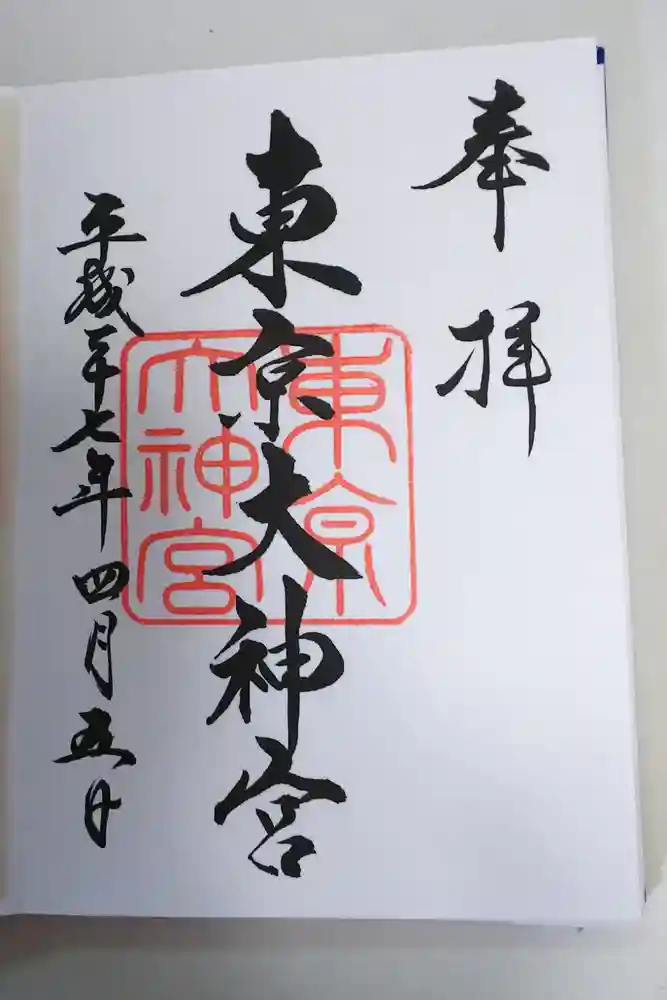 奉拝
東京大神宮
平成二十七年四月五日
東京
大神宮